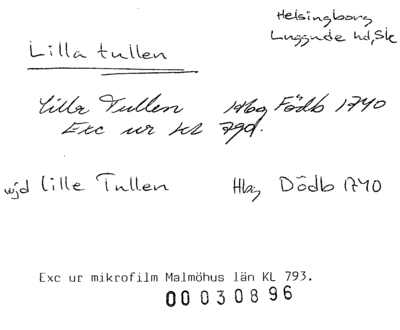 Helsingborg
Luggude hd, Sk
Lilla tullen
Lilla Tullen Hbg Födb 1740
Exc ur KL 793.
wjd Lille Tullen Hbg Dödb 1740
Exc ur mikrofilm Malmöhus län KL 793.
00030896